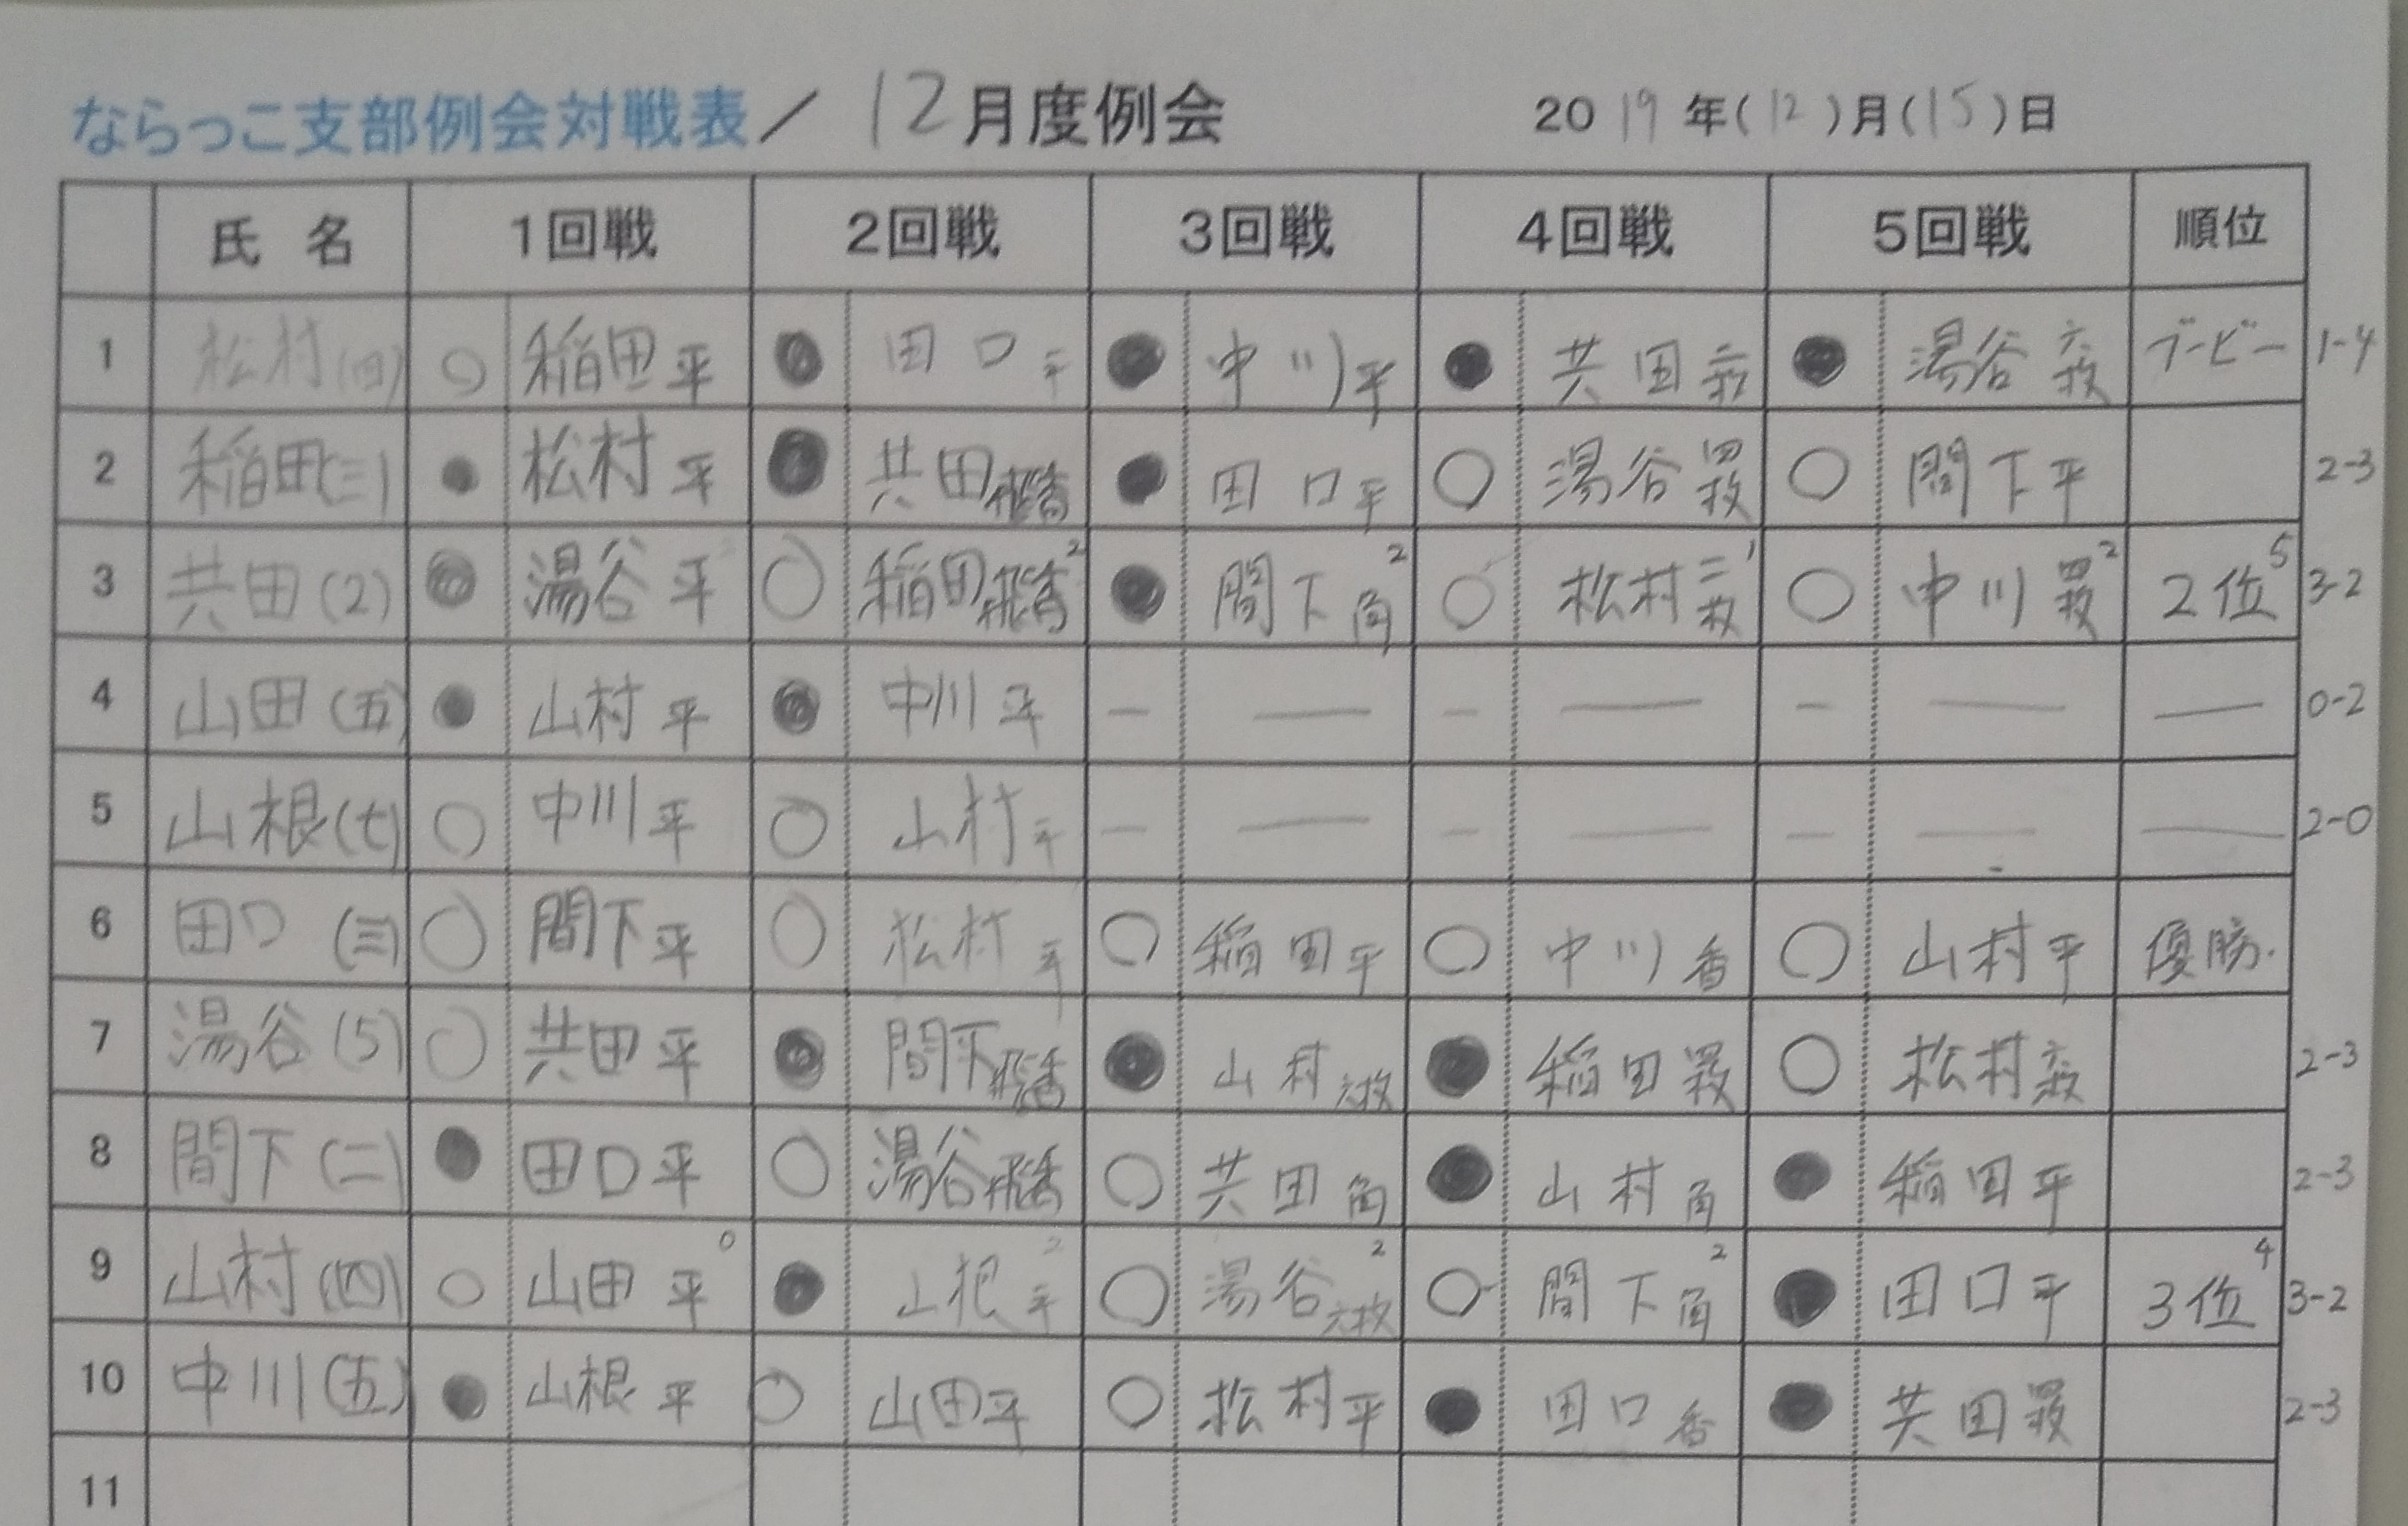 ならっこ支部例会対戦表／ 12月度例会 2019年(12)月(15)日
氏 名 1回戦 2回戦 3回戦 4回戦 5回戦 順位
1 松村(四) ○ 稲田 平 ● 田口 平 ● 中川 平 ● 共田 ● 湯谷 六枚 ブービー 1-4
2 稲田(三) ● 松村 平 ● 共田 飛香 ● 田口 平 ○ 湯谷 四枚 ○ 間下 平 2-3
3 共田(2) ● 湯谷 平 ○ 稲田 飛香 2 ● 間下 角 2 ○ 松村 1 ○ 中川 四枚 2 2位 5 3-2
4 山田(五) ● 山村 平 ● 中川 平 — — — — — — — 0-2
5 山根(七) ○ 中川 平 ○ 山村 平 — — — — — — — 2-0
6 田口(三) ○ 間下 平 ○ 松村 平 ○ 稲田 平 ○ 中川 香 ○ 山村 平 優勝.
7 湯谷(5) ○ 共田 平 ● 間下 飛香 ● 山村 六枚 ● 稲田 四枚 ○ 松村 六枚 2-3
8 間下(二) ● 田口 平 ○ 湯谷 飛香 ○ 共田 角 ● 山村 角 ● 稲田 平 2-3
9 山村(四) ○ 山田 平 0 ● 山根 平 2 ○ 湯谷 六枚 2 ○ 間下 角 2 ● 田口 平 3位 4 3-2
10 中川(五) ● 山根 平 ○ 山田 平 ○ 松村 平 ● 田口 香 ● 共田 四枚 2-3
11